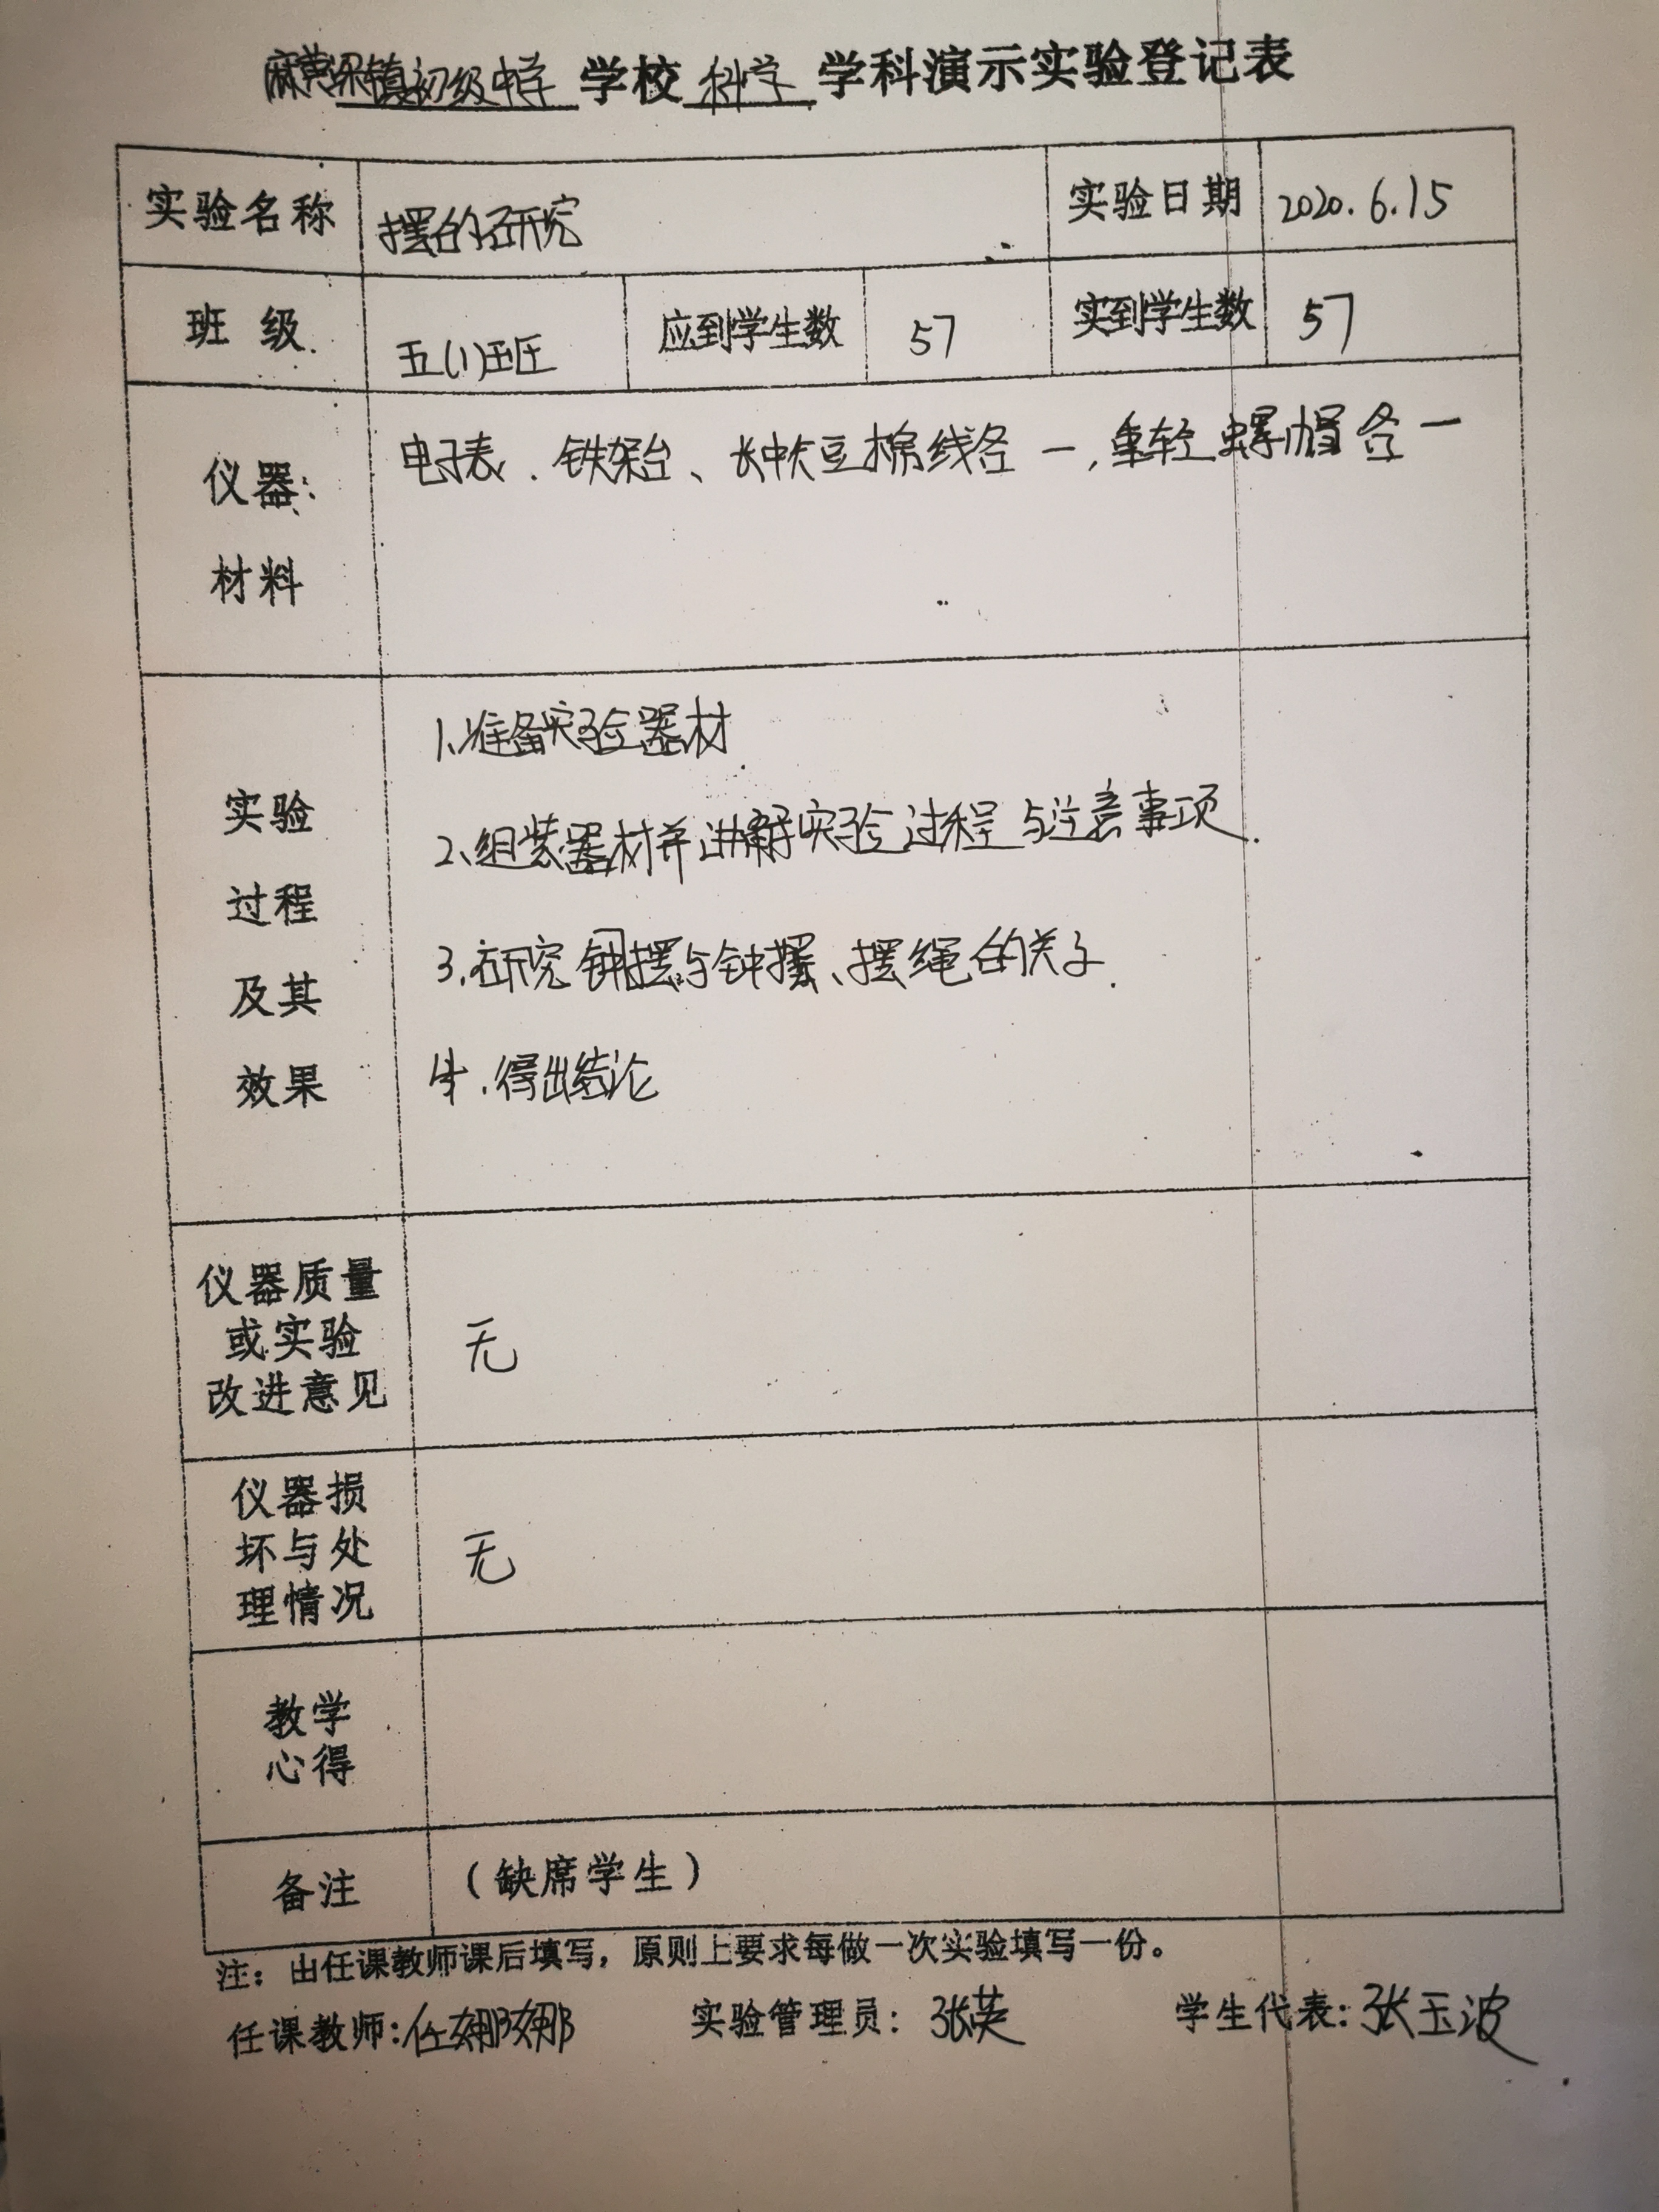 麻黄梁镇初级中学 学校 科学 学科演示实验登记表
实验名称 摆的研究 实验日期 2020.6.15
班 级 五(1)班 应到学生数 57 实到学生数 57
仪器: 电子表、铁架台、长中短棉线各一,重轻螺帽各一
材料
1、准备实验器材
实验 2、组装器材并讲解实验过程与注意事项.
过程 3.研究钟摆与钟摆、摆绳的关
及其
效果 4.得出结论
仪器质量
或实验 无
改进意见
仪器损
坏与处 无
理情况
教学
心得
备注 (缺席学生)
注:由任课教师课后填写,原则上要求每做一次实验填写一份。
任课教师:任娜娜 实验管理员:张英 学生代表:张玉波